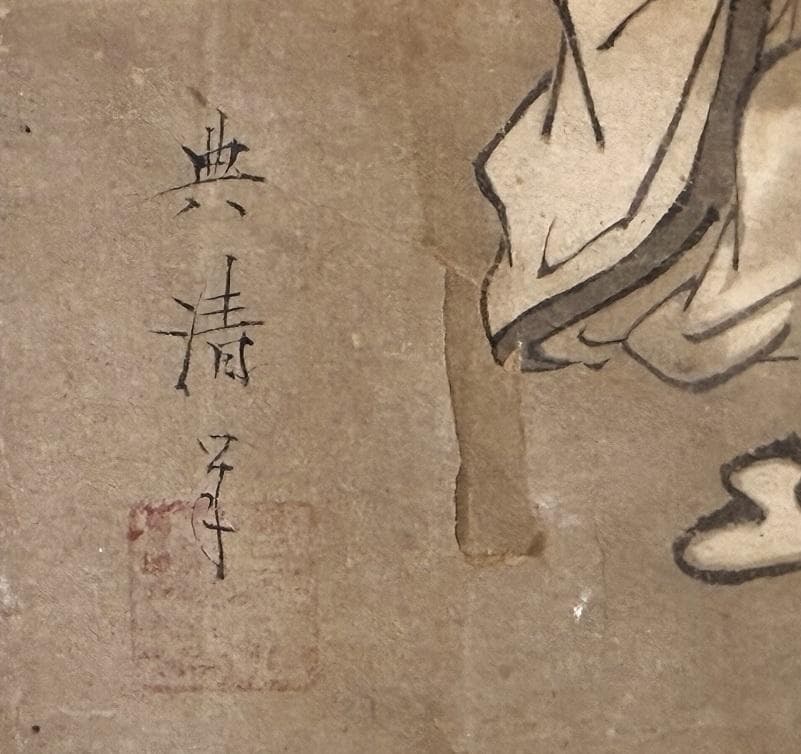 典清筆